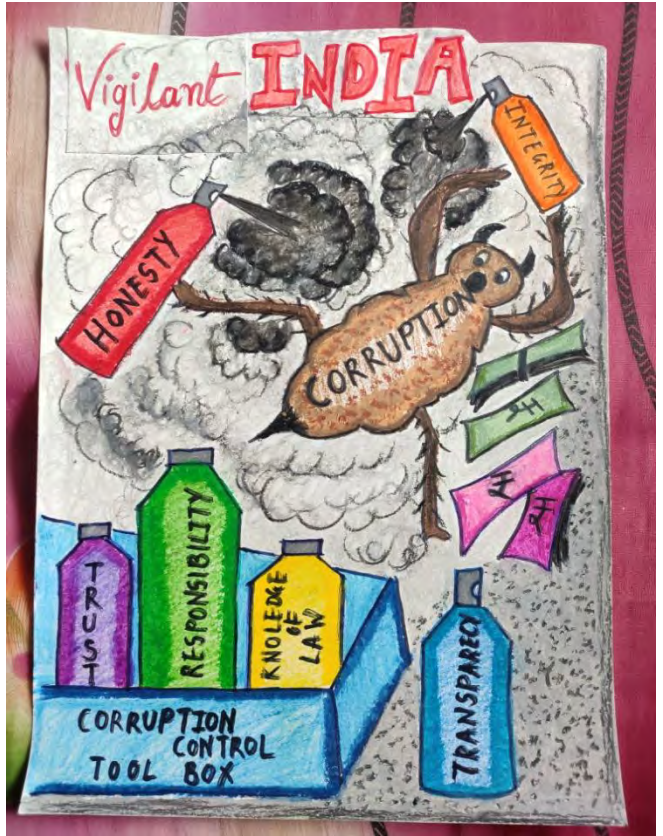 Vigilant INDIA
INTEGRITY
HONESTY
CORRUPTION
₹
₹
₹
TRUST
RESPONSIBILITY
KNOLEDGE
OF
LAW
TRANSPARECY
CORRUPTION
CONTROL
TOOL BOX